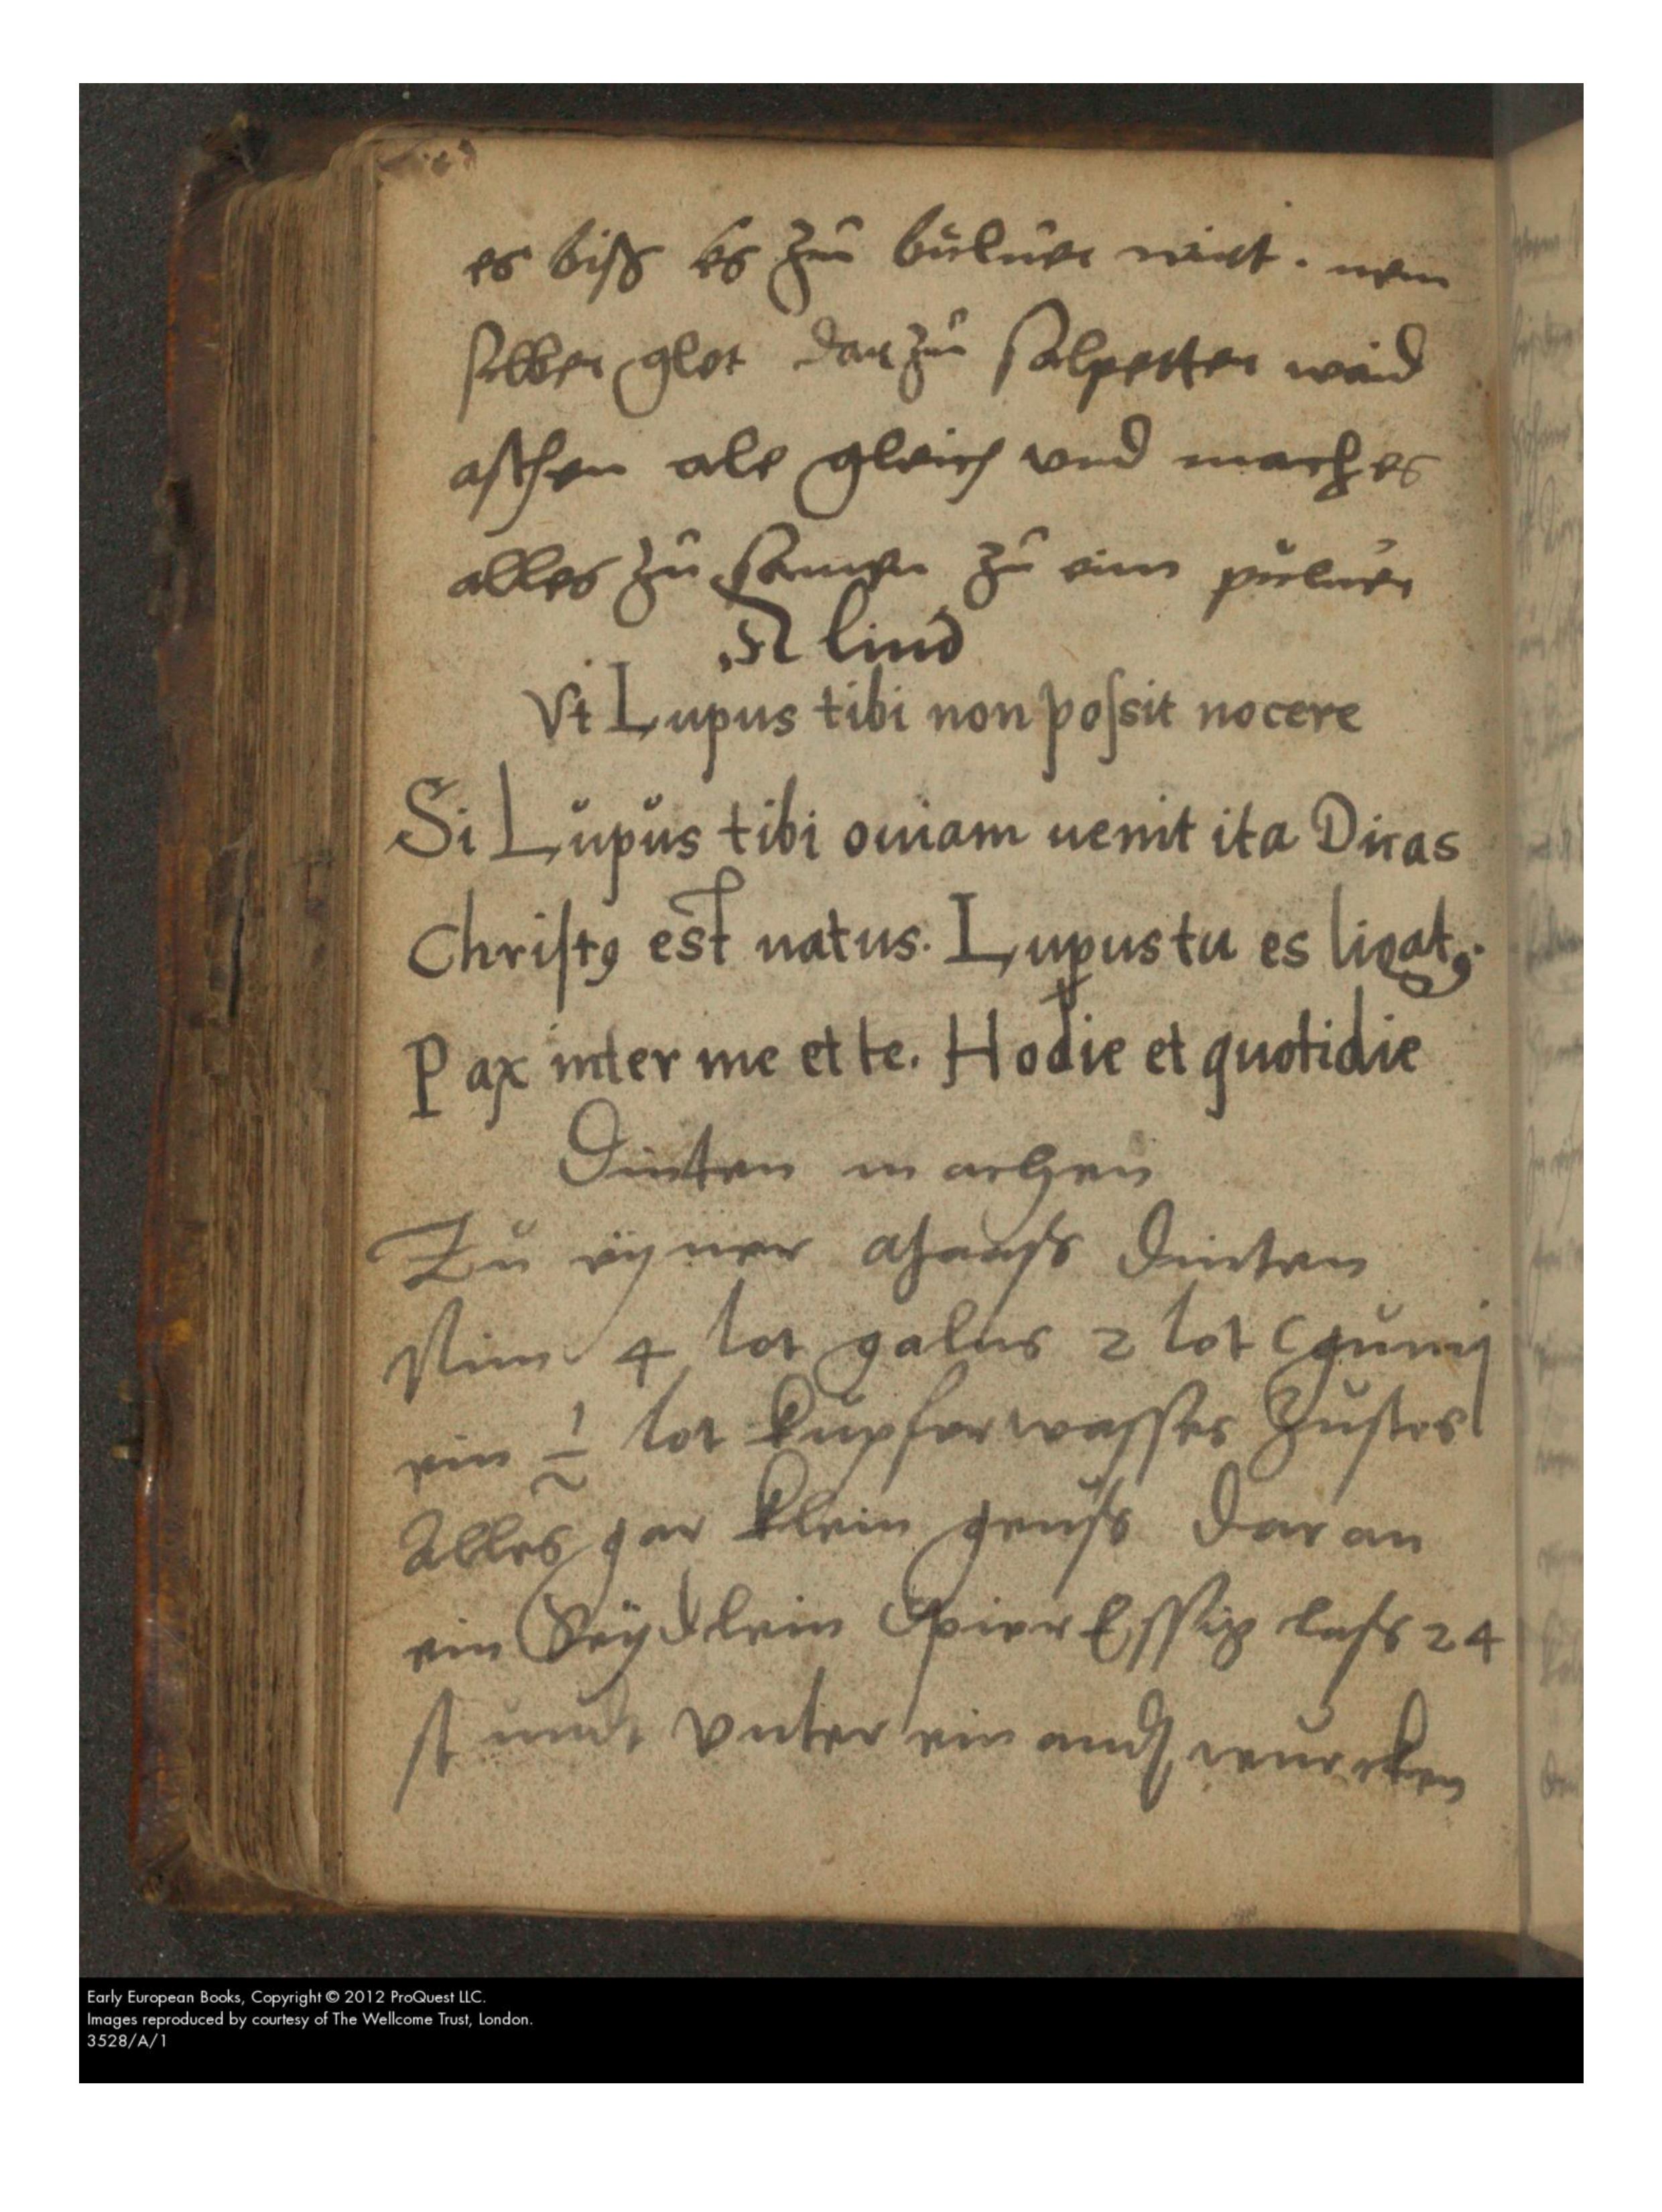 es biß es zu bulner wirt . nem
silber glet dar zu salpetter waid
aschen ale gleich vnd mach es
alles zu samen zu eim puluer
lind
Vt Lupus tibi non poſsit nocere
Si Lupus tibi ouiam uenit ita Dicas
Chriſtꝯ est natus. Lupus tu es ligatꝯ.
Pax inter me et te. Hodie et quotidie
Dinten machen
Zu einer Dinten
Nim 4 lot galus 2 lot gumi
ein 1 lot kupferwasser Zustos
Alles gar klein geuß dar an
ein Seydlein Essig laß 24
stundt vnter ein and
Early European Books, Copyright © 2012 ProQuest LLC.
Images reproduced by courtesy of The Wellcome Trust, London.
3528/A/1